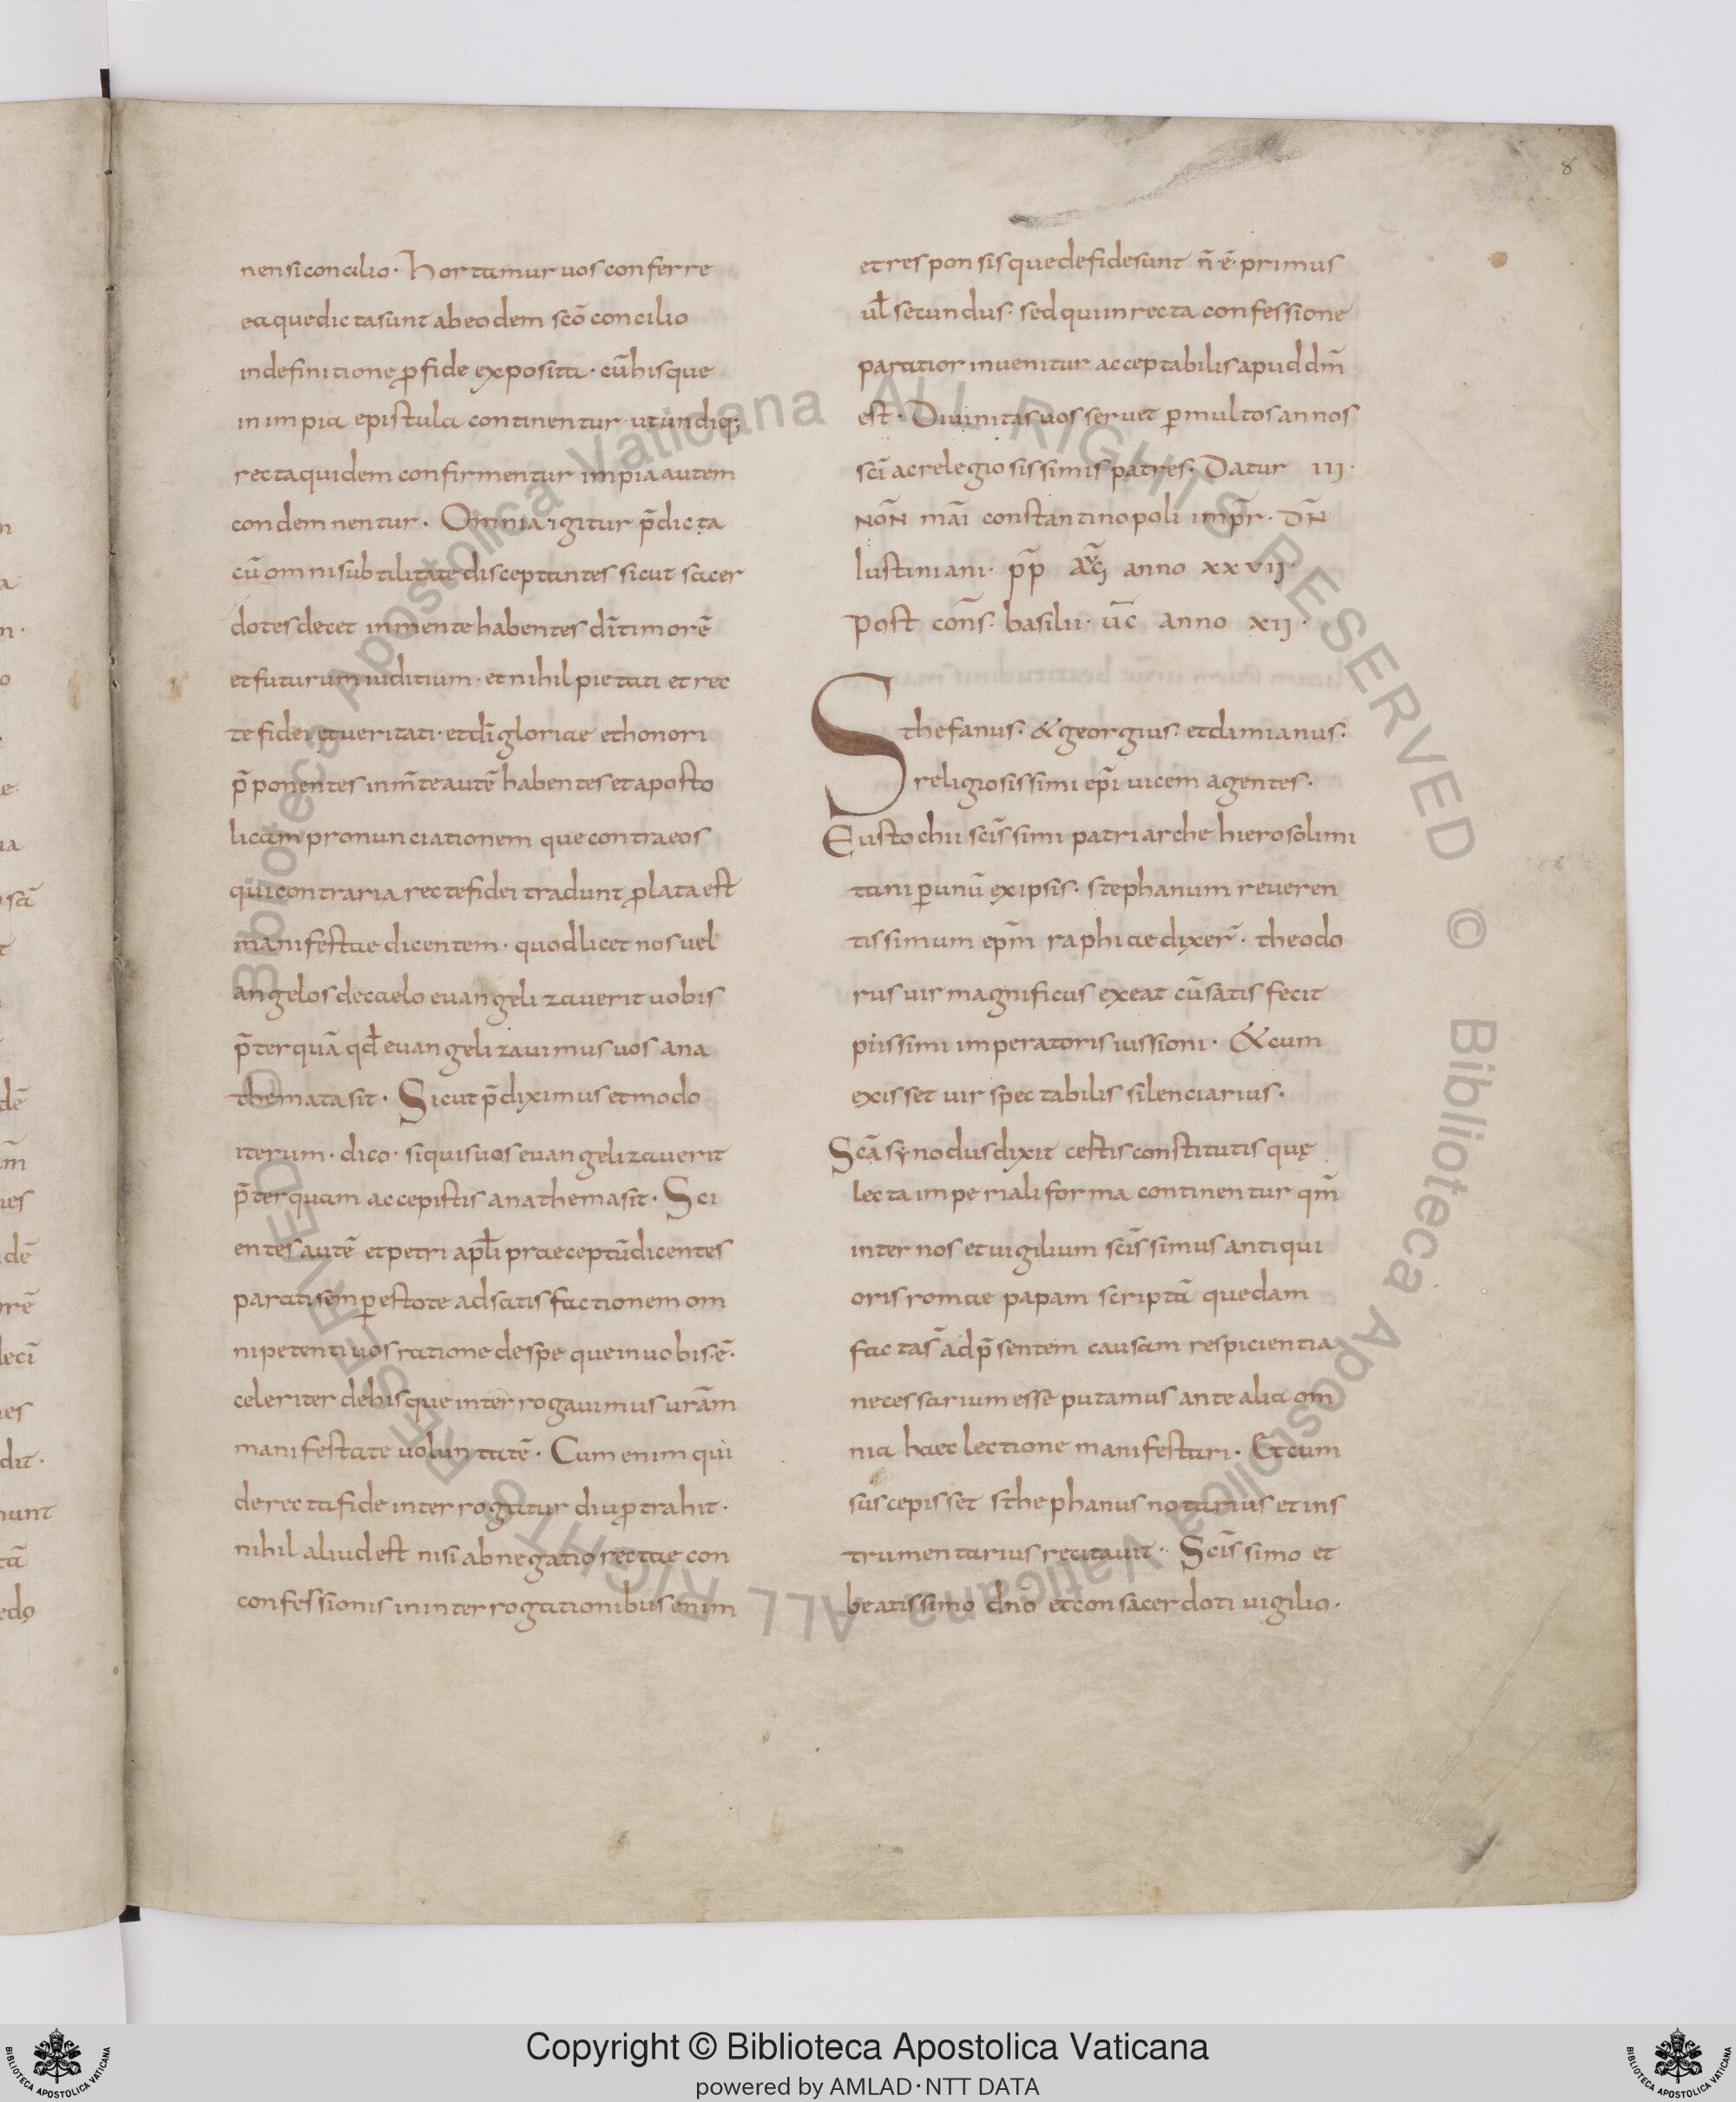 8
nensi concilio · Hortamur uos conferre
ea que dicta sunt ab eodem scō concilio
in definitione ꝓ fide exposita · cū his que
in impia epistula continentur · ut undiq;
recta quidem confirmentur impia autem
condemnentur · Omnia igitur p̄dicta
cū omni subtilitate disceptantes sicut sacer
dotes decet in mente habentes dī timorē
et futurum iuditium · et nihil pietati et rec
te fidei et ueritati · et dī gloriae et honori
p̄ponentes in m̄te autē habentes et aposto
licam pronunciationem que contra eos
qui contraria recte fidei tradunt ꝓlata est
manifestae dicentem · quod licet nos uel
angelos de caelo euangelizauerit uobis
p̄ter quā qđ euangelizauimus uos ana
themata sit · Sicut p̄diximus et modo
iterum · dico · si quis uos euangelizauerit
p̄ter quam accepistis anathema sit · Sci
entes autē et petri apłi praeceptū dicentes
parati semꝑ estote ad satisfactionem om
ni petenti uos ratione de spe que in uobis · ē ·
celeriter de his que interrogauimus urām
manifestate uoluntatē · Cum enim qui
de recta fide interrogatur diu ꝓtrahit ·
nihil aliud est nisi abnegatio rectae con
confessionis in interrogationibus enim
et responsis que de fide sunt n̄ ē primus
uł secundus · sed qui in recta confessione
paratior inuenitur acceptabilis apud dm̄
est · Diuinitas uos seruet ꝑ multos annos
scī ac relegiosissimis patres · Datur III ·
NON̄ māi constantinopoli imp̄r · D̄N
Iustiniani · p̄p̄ aūg anno XXVII ·
Post cons̄ · basilii · ūc anno XII ·
Sthefanus · & georgius · et damianus ·
religiosissimi ep̄i uicem agentes ·
Eustochii scīssimi patriarche hierosolimi
tani ꝑ unū ex ipsis · stephanum reueren
tissimum ep̄m raphiae dixer̄ · theodo
rus uir magnificus exeat cū satis fecit
piissimi imperatoris iussioni · & cum
exisset uir spectabilis silenciarius ·
Scā synodus dixit cestis constitutis quę
lecta imperiali forma continentur qm̄
inter nos et uigilium scīssimus antiqui
oris romae papam scriptā quedam
factas̄ ad p̄sentem causam respicientia
necessarium esse putamus ante alia om
nia haec lectione manifestari · Et cum
suscepisset sthephanus notarius et ins
trumentarius recitauit · Scīssimo et
beatissimo dn̄o et consacerdoti uigilio ·
© Biblioteca Apostolica Vaticana ALL RIGHTS RESERVED
© Biblioteca Apostolica Vaticana ALL RIGHTS RESERVED
Copyright © Biblioteca Apostolica Vaticana
powered by AMLAD · NTT DATA
BIBLIOTECA APOSTOLICA VATICANA
BIBLIOTECA APOSTOLICA VATICANA